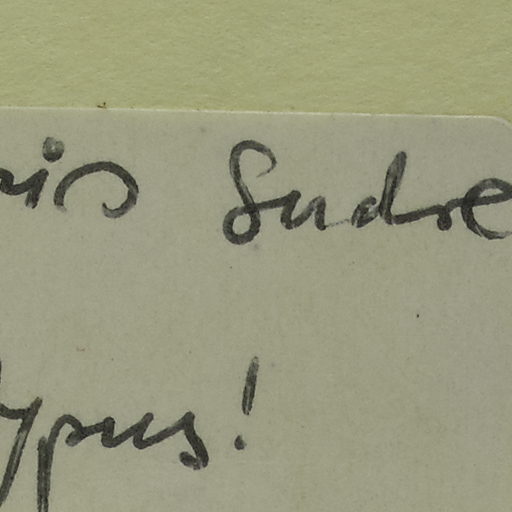 is Sudre
ypus!